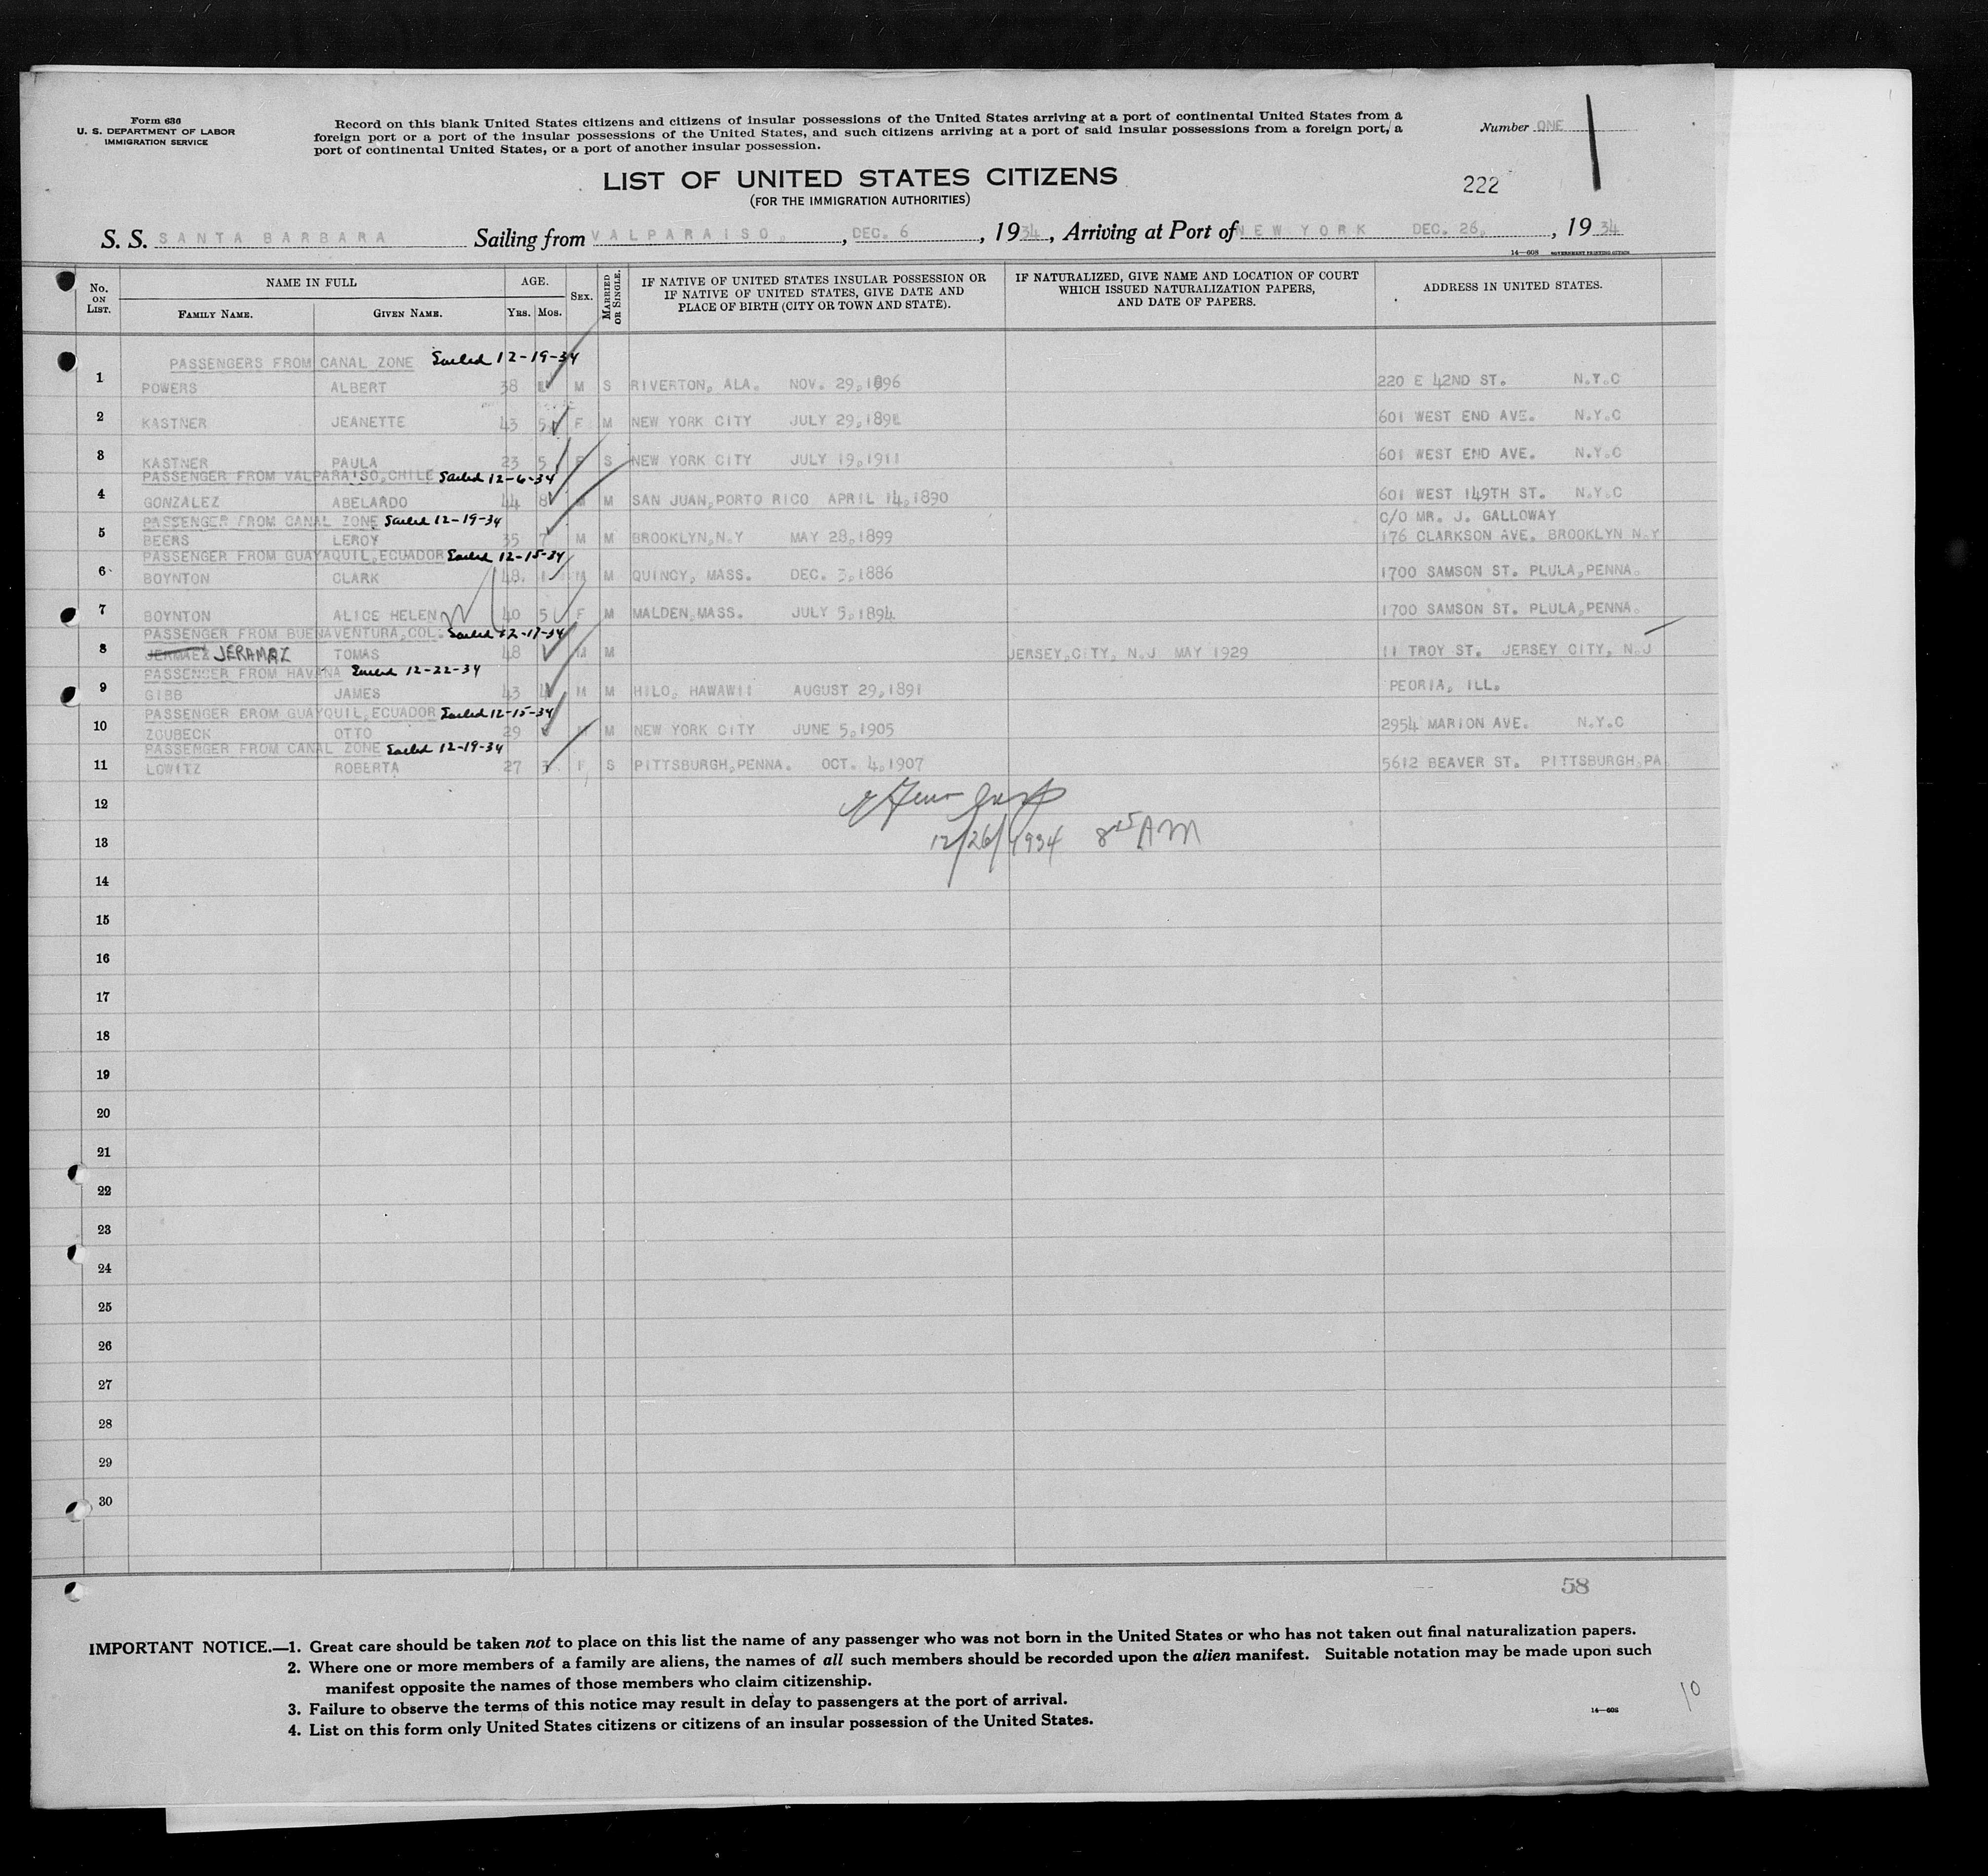 Form 636
U. S. DEPARTMENT OF LABOR
IMMIGRATION SERVICE
Record on this blank United States citizens and citizens of insular possessions of the United States arriving at a port of continental United States from a
foreign port or a port of the insular possessions of the United States, and such citizens arriving at a port of said insular possessions from a foreign port, a
port of continental United States, or a port of another insular possession.
Number ONE
LIST OF UNITED STATES CITIZENS
(FOR THE IMMIGRATION AUTHORITIES)
222
S. S. SANTA BARBARA Sailing from VALPARAISO, DEC. 6, 1934, Arriving at Port of NEW YORK DEC. 26, 1934
14—608 GOVERNMENT PRINTING OFFICE
No. ON LIST. NAME IN FULL AGE. SEX. MARRIED OR SINGLE. IF NATIVE OF UNITED STATES INSULAR POSSESSION OR IF NATIVE OF UNITED STATES, GIVE DATE AND PLACE OF BIRTH (CITY OR TOWN AND STATE). IF NATURALIZED, GIVE NAME AND LOCATION OF COURT WHICH ISSUED NATURALIZATION PAPERS, AND DATE OF PAPERS. ADDRESS IN UNITED STATES.
FAMILY NAME. GIVEN NAME. YRS. MOS.
PASSENGERS FROM CANAL ZONE Sailed 12-19-34
1 POWERS ALBERT 38 M S RIVERTON, ALA. NOV. 29,1896 220 E 42ND ST. N.Y.C
2 KASTNER JEANETTE 43 5 F M NEW YORK CITY JULY 29,1891 601 WEST END AVE. N.Y.C
3 KASTNER PAULA 23 5 F S NEW YORK CITY JULY 19,1911 601 WEST END AVE. N.Y.C
PASSENGER FROM VALPARAISO,CHILE Sailed 12-6-34
4 GONZALEZ ABELARDO 44 8 M M SAN JUAN,PORTO RICO APRIL 14,1890 601 WEST 149TH ST. N.Y.C
PASSENGER FROM CANAL ZONE Sailed 12-19-34 C/O MR. J. GALLOWAY
5 BEERS LEROY 35 7 M M BROOKLYN,N.Y MAY 28,1899 176 CLARKSON AVE. BROOKLYN N.Y
PASSENGER FROM GUAYAQUIL,ECUADOR Sailed 12-15-34
6 BOYNTON CLARK 48 M M QUINCY, MASS. DEC. 3,1886 1700 SAMSON ST. PLULA,PENNA.
7 BOYNTON ALICE HELEN 40 5 F M MALDEN,MASS. JULY 5,1894 1700 SAMSON ST. PLULA,PENNA.
PASSENGER FROM BUENAVENTURA,COL. Sailed 12-17-34
8 JERMAEZ JERAMAZ TOMAS 48 M M JERSEY,CITY, N.J MAY 1929 11 TROY ST. JERSEY CITY, N.J
PASSENGER FROM HAVANA Sailed 12-22-34
9 GIBB JAMES 43 4 M M HILO, HAWAWII AUGUST 29,1891 PEORIA, ILL.
PASSENGER FROM GUAYQUIL,ECUADOR Sailed 12-15-34
10 ZOUBECK OTTO 29 M M NEW YORK CITY JUNE 5,1905 2954 MARION AVE. N.Y.C
PASSENGER FROM CANAL ZONE Sailed 12-19-34
11 LOWITZ ROBERTA 27 F S PITTSBURGH,PENNA. OCT. 4,1907 5612 BEAVER ST. PITTSBURGH,PA
12
12/26/1934 8 AM
13
14
15
16
17
18
19
20
21
22
23
24
25
26
27
28
29
30
58
IMPORTANT NOTICE.—1. Great care should be taken not to place on this list the name of any passenger who was not born in the United States or who has not taken out final naturalization papers.
2. Where one or more members of a family are aliens, the names of all such members should be recorded upon the alien manifest. Suitable notation may be made upon such
manifest opposite the names of those members who claim citizenship.
3. Failure to observe the terms of this notice may result in delay to passengers at the port of arrival.
4. List on this form only United States citizens or citizens of an insular possession of the United States.
14—608
10